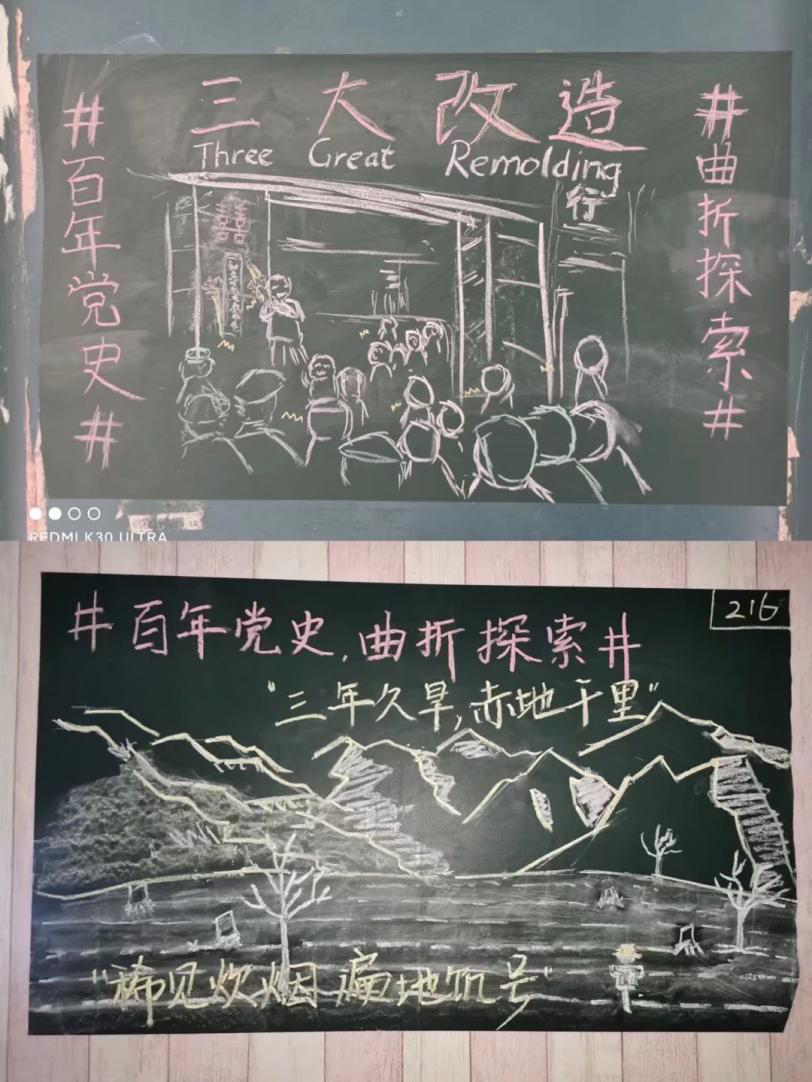 三大改造
Three Great Remolding
#百年党史#
#曲折探索#
行
囍
REDMI K30 ULTRA
#百年党史,曲折探索#
216
"三年久旱,赤地千里"
"稀见炊烟 遍地饥号"